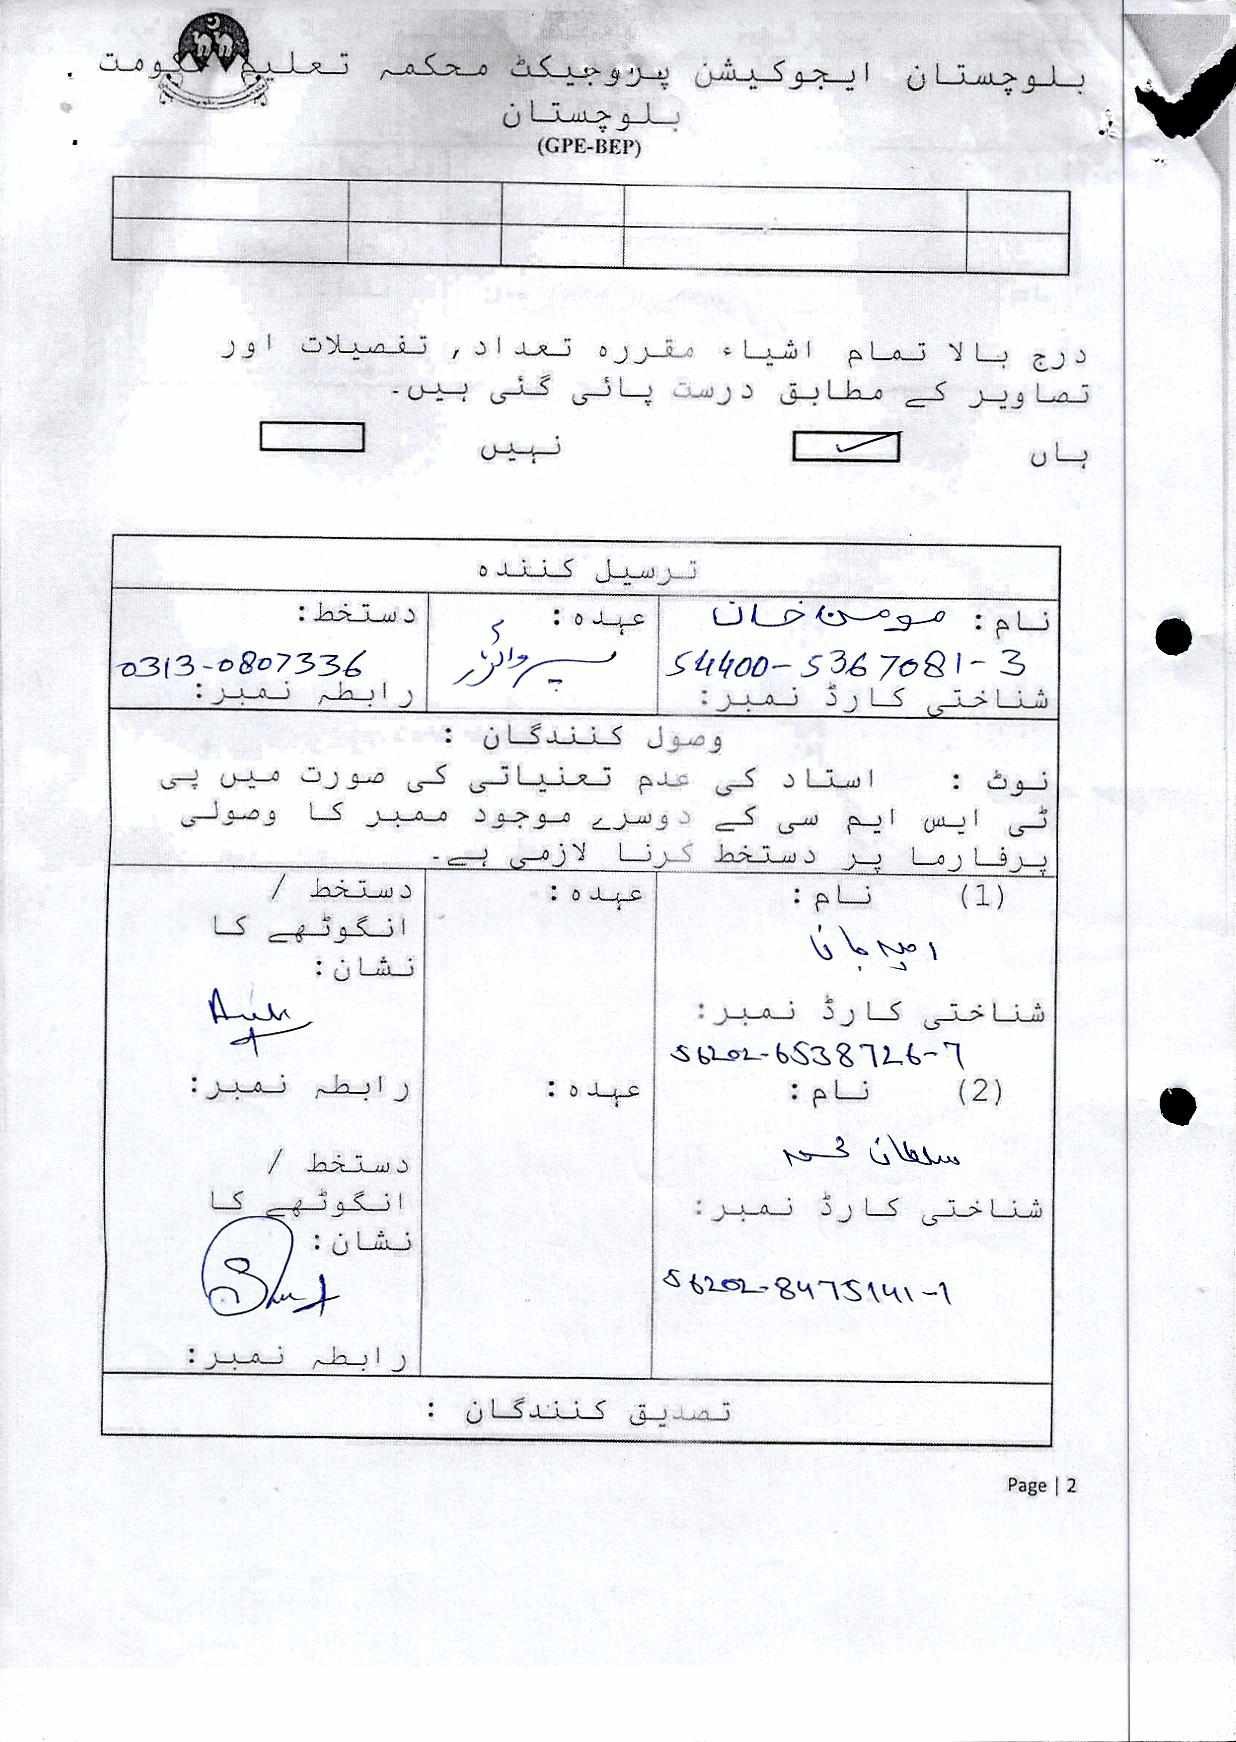 بلوچستان ایجوکیشن پروجیکٹ محکمہ تعلیم حکومت
بلوچستان
(GPE-BEP)
درج بالا تمام اشیاء مقررہ تعداد, تفصیلات اور
تصاویر کے مطابق درست پائی گئی ہیں۔
ہاں ✓ نہیں
ترسیل کنندہ
نام: مومن خان عہدہ: سپروائزر دستخط:
54400-5367081-3 0313-0807336
شناختی کارڈ نمبر: رابطہ نمبر:
وصول کنندگان :
نوٹ : استاد کی عدم تعنیاتی کی صورت میں پی
ٹی ایس ایم سی کے دوسرے موجود ممبر کا وصولی
پرفارما پر دستخط کرنا لازمی ہے۔
(1) نام: عہدہ: دستخط /
انگوٹھے کا
جان
نشان:
شناختی کارڈ نمبر:
56202-6538726-7
(2) نام: عہدہ: رابطہ نمبر:
سلطان محمد
دستخط /
انگوٹھے کا
شناختی کارڈ نمبر:
نشان:
56202-8475141-1
رابطہ نمبر:
تصدیق کنندگان :
Page | 2